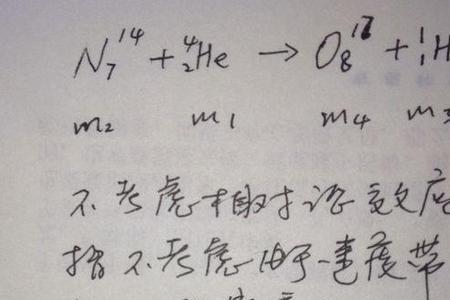 N₇¹⁴ + ⁴₂He → O₈¹⁷ + ¹₁H
m₂ m₁ m₄ m₃
不考虑相对论效应
指不考虑由于速度带